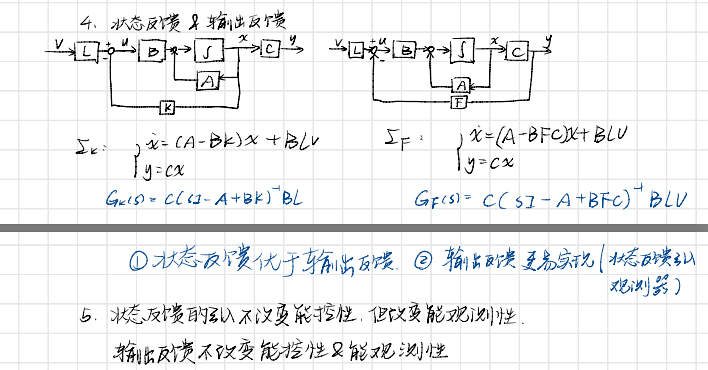 4. 状态反馈 & 输出反馈
V L + - u B ∫ x C y A K
V L + - u B ∫ x C y A F
Σk: { ẋ = (A-BK)x + BLV
y = cx
GK(s) = C(sI-A+BK)⁻¹BL
ΣF: { ẋ = (A-BFC)x + BLV
y = cx
GF(s) = C(sI-A+BFC)⁻¹BLV
① 状态反馈优于输出反馈. ② 输出反馈更易实现 (状态反馈引入
观测器)
5. 状态反馈的引入不改变能控性, 但改变能观测性.
输出反馈不改变能控性&能观测性